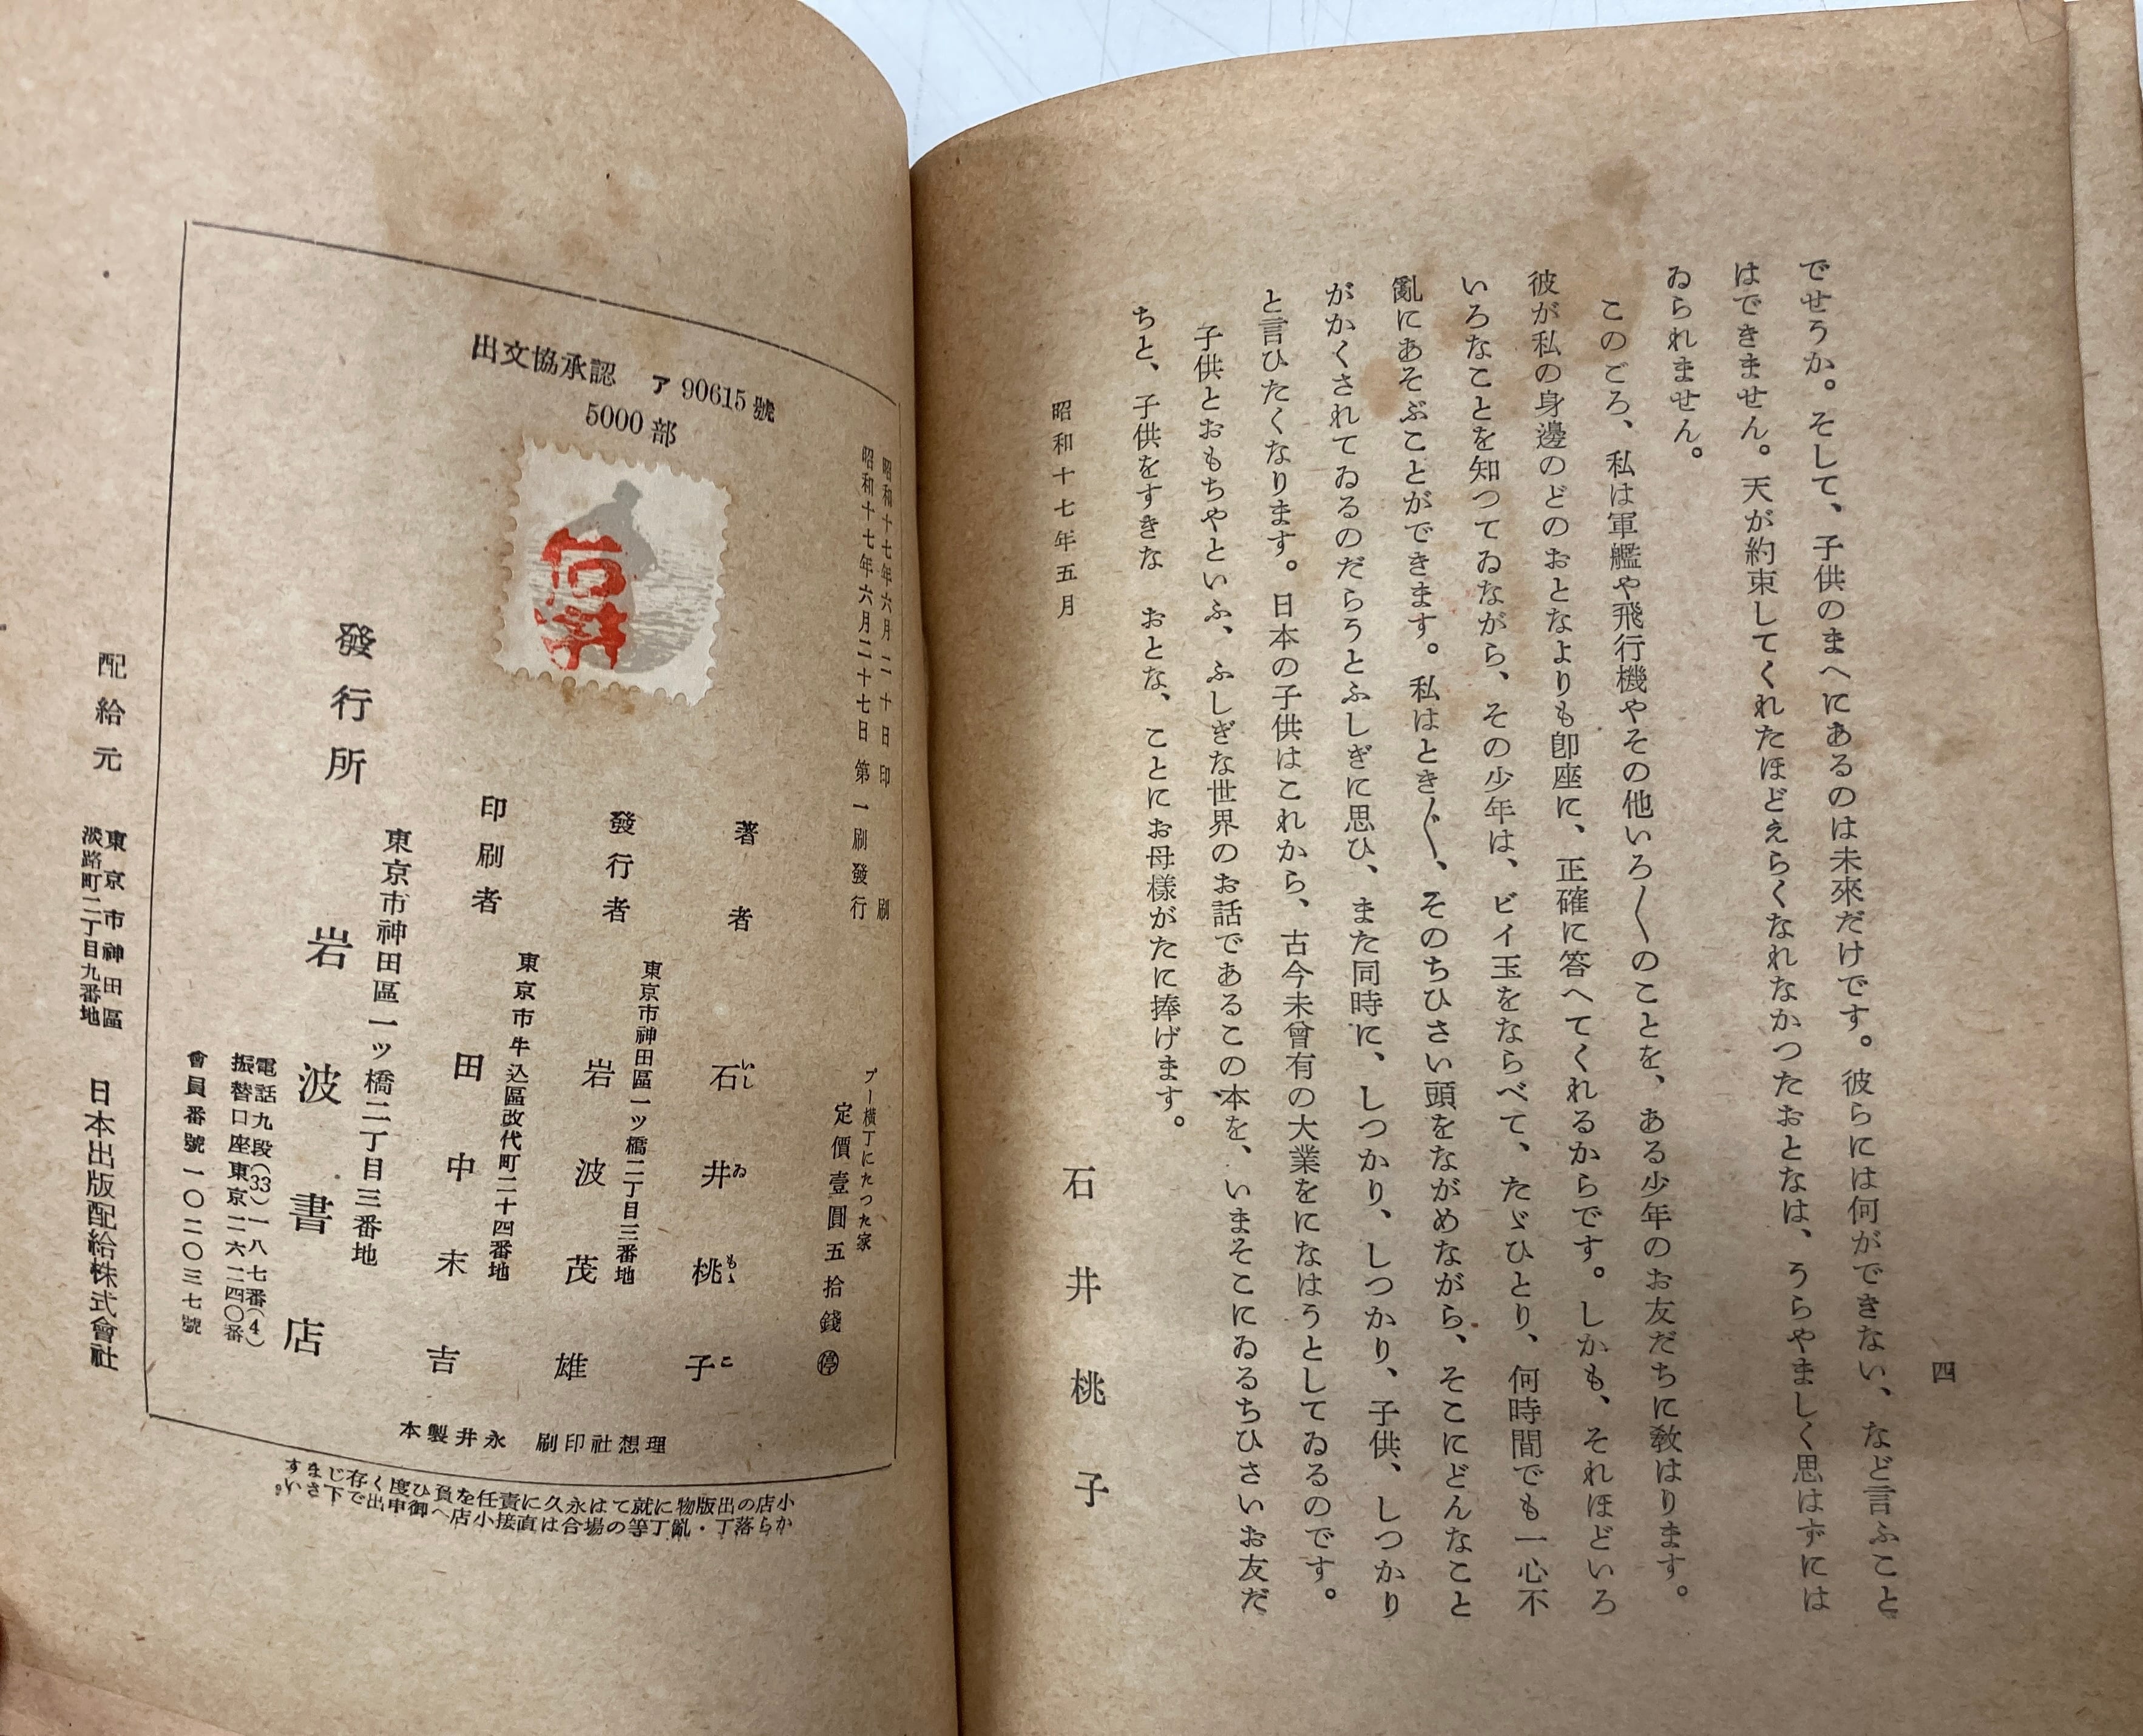 四
でせうか。そして、子供のまへにあるのは未來だけです。彼らには何ができない、など言ふこと
はできません。天が約束してくれたほどえらくなれなかつたおとなは、うらやましく思はずには
ゐられません。
このごろ、私は軍艦や飛行機やその他いろ〱のことを、ある少年のお友だちに敎はります。
彼が私の身邊のどのおとなよりも卽座に、正確に答へてくれるからです。しかも、それほどいろ
いろなことを知つてゐながら、その少年は、ビイ玉をならべて、たゞひとり、何時間でも一心不
亂にあそぶことができます。私はとき〲、そのちひさい頭をながめながら、そこにどんなこと
がかくされてゐるのだらうとふしぎに思ひ、また同時に、しつかり、しつかり、子供、しつかり
と言ひたくなります。日本の子供はこれから、古今未曾有の大業をになはうとしてゐるのです。
子供とおもちやといふ、ふしぎな世界のお話であるこの本を、いまそこにゐるちひさいお友だ
ちと、子供をすきな おとな、ことにお母樣がたに捧げます。
昭和十七年五月
石井桃子
出文協承認 ア90615號
5000部
石井
昭和十七年六月二十日印刷
昭和十七年六月二十七日第一刷發行
プー橫丁にたつた家
定價壹圓五拾錢 停
著者 石井桃子
いしゐもゝこ
東京市神田區一ツ橋二丁目三番地
發行者 岩波茂雄
東京市牛込區改代町二十四番地
印刷者 田中末吉
東京市神田區一ツ橋二丁目三番地
發行所 岩波書店
電話九段(33)一八七番(4)
振替口座東京二六二四〇番
會員番號一〇二〇三七號
理想社印刷 永井製本
小店の出版物に就ては永久に責任を負ひ度く存じます
から落丁・亂丁等の場合は直接小店へ御申出で下さい。
配給元 東京市神田區
淡路町二丁目九番地
日本出版配給株式會社